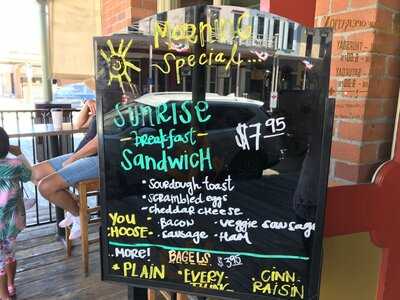 MORNING
Special...
SUNRISE
breakfast
SANDWICH
$7.95
• SOURDOUGH TOAST
• SCRAMBLED eggs
• CHEDDAR CHEESE
YOU • BACON • Veggie SAUSAGE
CHOOSE • SAUSAGE • HAM
...MORE! BAGELS $3.95
• PLAIN • EVERY- • CINN.
THING RAISIN